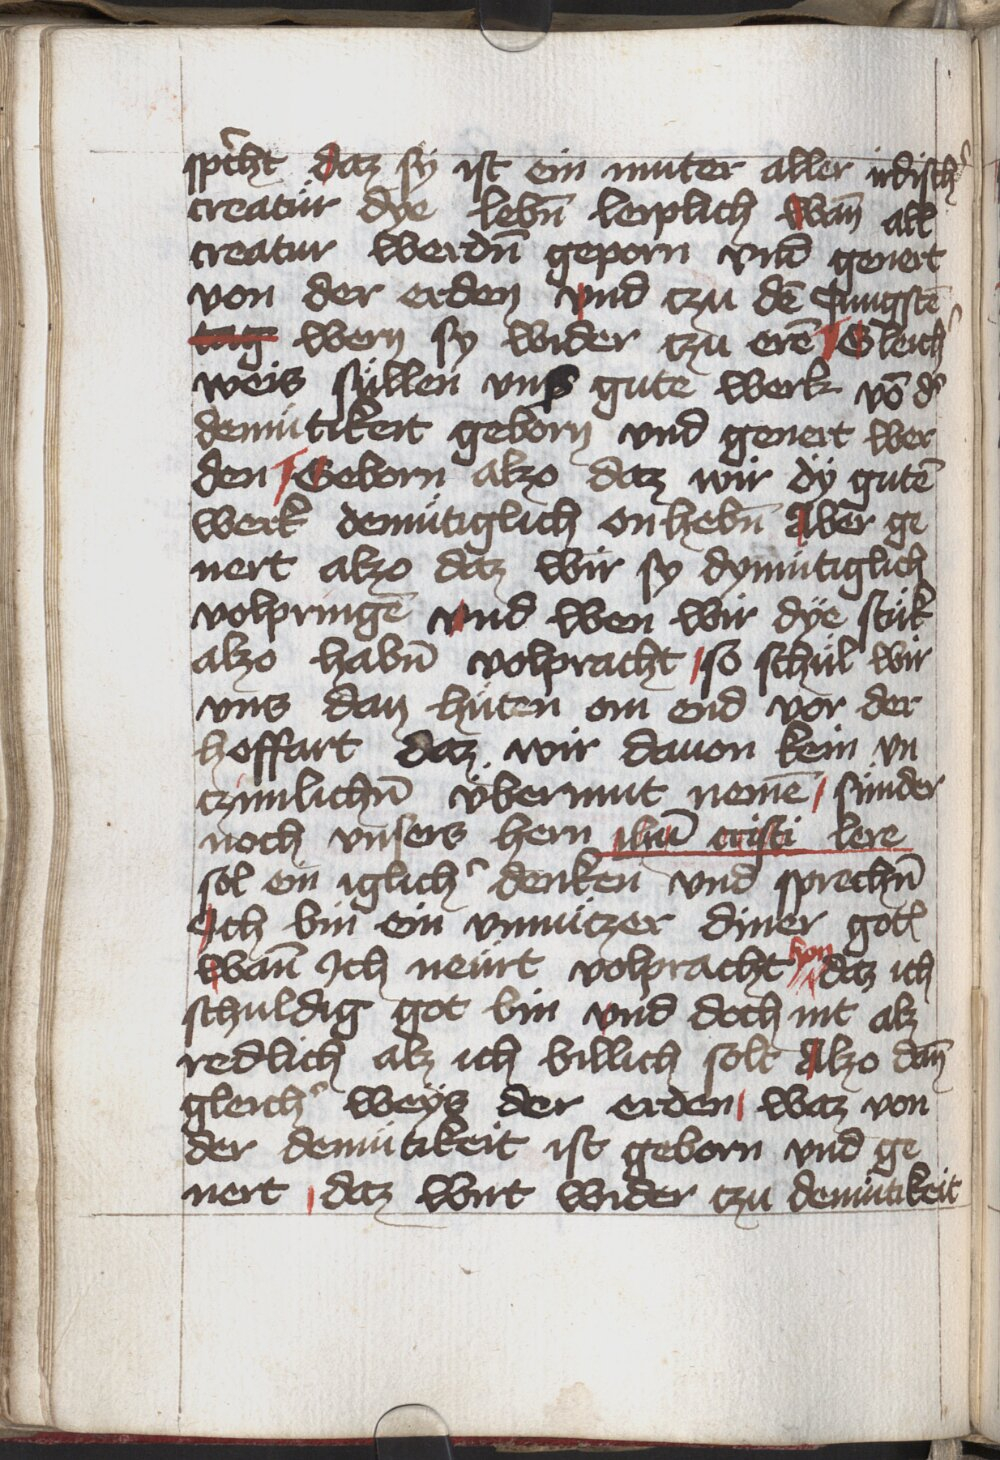 spͥcht daz sÿ ist ein muter aller irdischᷣ
creatur dÿe lebn̄ lerplich wan̄ all
creatur werdn̄ geporn vnd genert
von der erden vnd czu dē Jungstē
tag wern sy wider czu erē Gleichᷣ
weis sullen vns gute werk vō dᷣ
demütikeit geborn vnd genert wer
den Geborn alzo daz wir dÿ gutē
werk demütiglich onhebn̄ Aber ge
nert alzo daz wir sy dymütiglich
volpringē vnd wen wir dÿe stük
alzo habn̄ volpracht so schül wir
vns dan hüten om end vor der
hoffart daz wir dauon kein vn
czimlichn̄ vbermut nemē sunder
noch vnsers hern ihū cristi lere
sol ein iglichᷣ denken vnd sprechn̄
Ich bin ein vnnüczer diner gotꝭ
wan̄ Ich neürt volpracht hon daz ich
schuldig got bin vnd doch nit alz
redlich alz ich billich solt Alzo dan̄
gleichᷣ weÿs der erden waz von
der demütikeit ist geborn vnd ge
nert daz wirt wider czu demütikeit